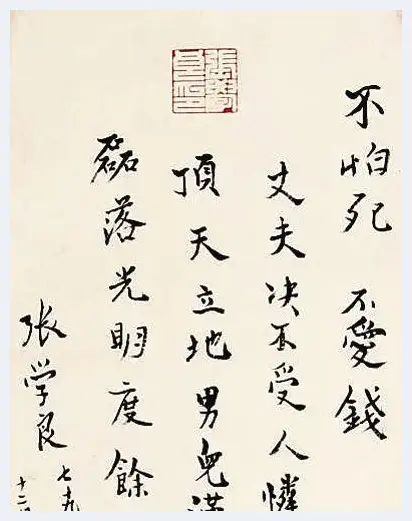 張學良印
不怕死 不愛錢
丈夫决不受人憐
頂天立地男兒
磊落光明度餘
张学良
七
十二